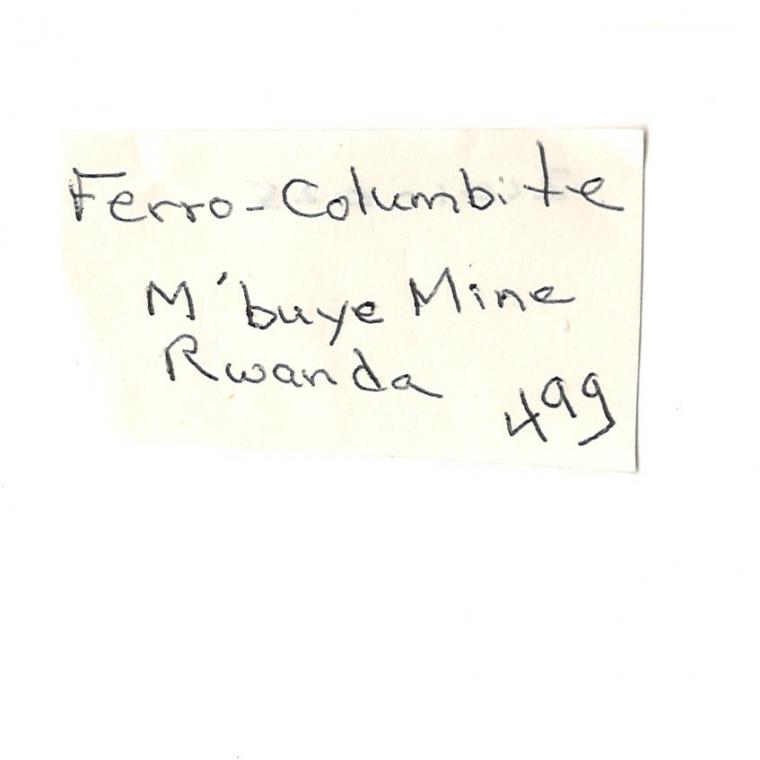 Ferro-Columbite
M'buye Mine
Rwanda
499